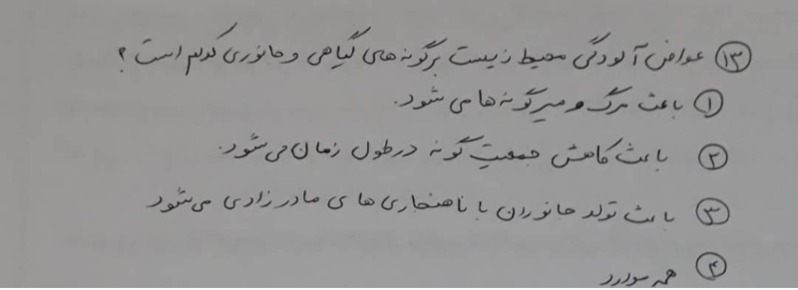 ۱۳ عوارض آلودگی محیط زیست بر گونه های گیاهی و جانوری کدام است ؟
۱ باعث مرگ و میر گونه ها می شود.
۲ باعث کاهش جمعیت گونه در طول زمان می شود.
۳ باعث تولد جانوران با ناهنجاری های مادرزادی می شود
۴ همه موارد